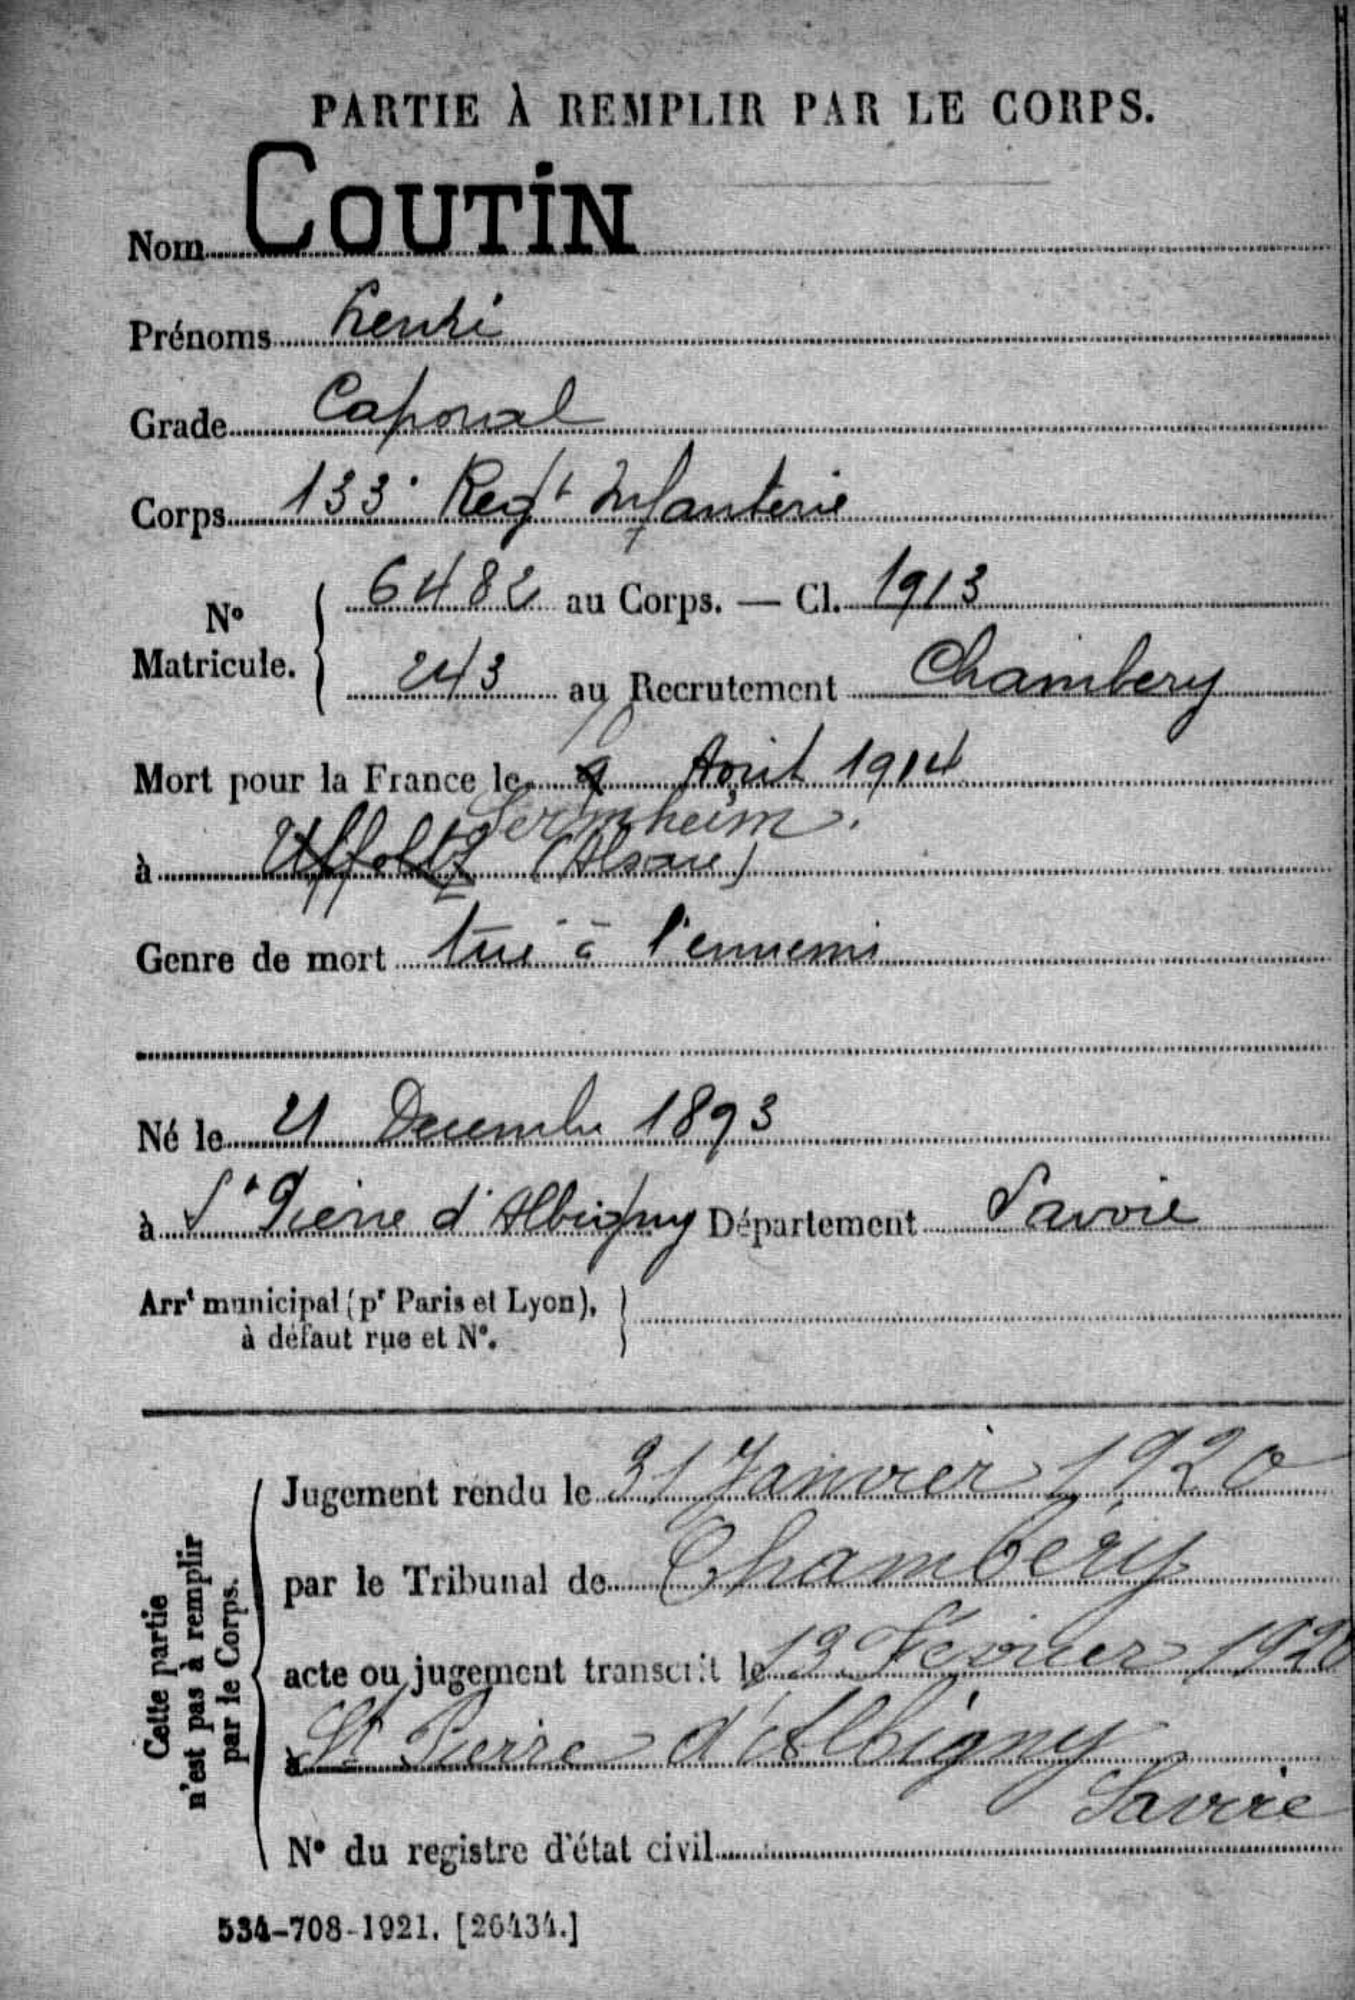 PARTIE À REMPLIR PAR LE CORPS.
Nom COUTIN
Prénoms henri
Grade Caporal
Corps 133e Regt Infanterie
N° Matricule. { 6482 au Corps. — Cl. 1913
243 au Recrutement Chambery
Mort pour la France le 9 Août 1914
Sermheim.
à Uffoltz (Alsace)
Genre de mort tué à l'ennemi
Né le 21 Decembre 1893
à St Pierre d'Albigny Département Savoie
Arrt municipal (pr Paris et Lyon), }
à défaut rue et N°.
Cette partie
n'est pas à remplir
par le Corps.
Jugement rendu le 31 Janvier 1920
par le Tribunal de Chambéry
acte ou jugement transcrit le 13 Février 1920
à St Pierre d'Albigny
Savoie
N° du registre d'état civil
534-708-1921. [26434.]